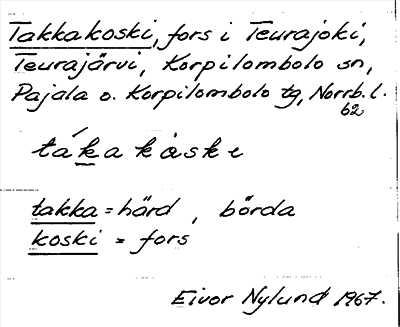 Takkakoski, fors i Teurajoki,
Teurajärvi, Korpilombolo sn,
Pajala o. Korpilombolo tg, Norrb. l.
62
tákakåske
takka = härd, börda
koski = fors
Eivor Nylund 1967.